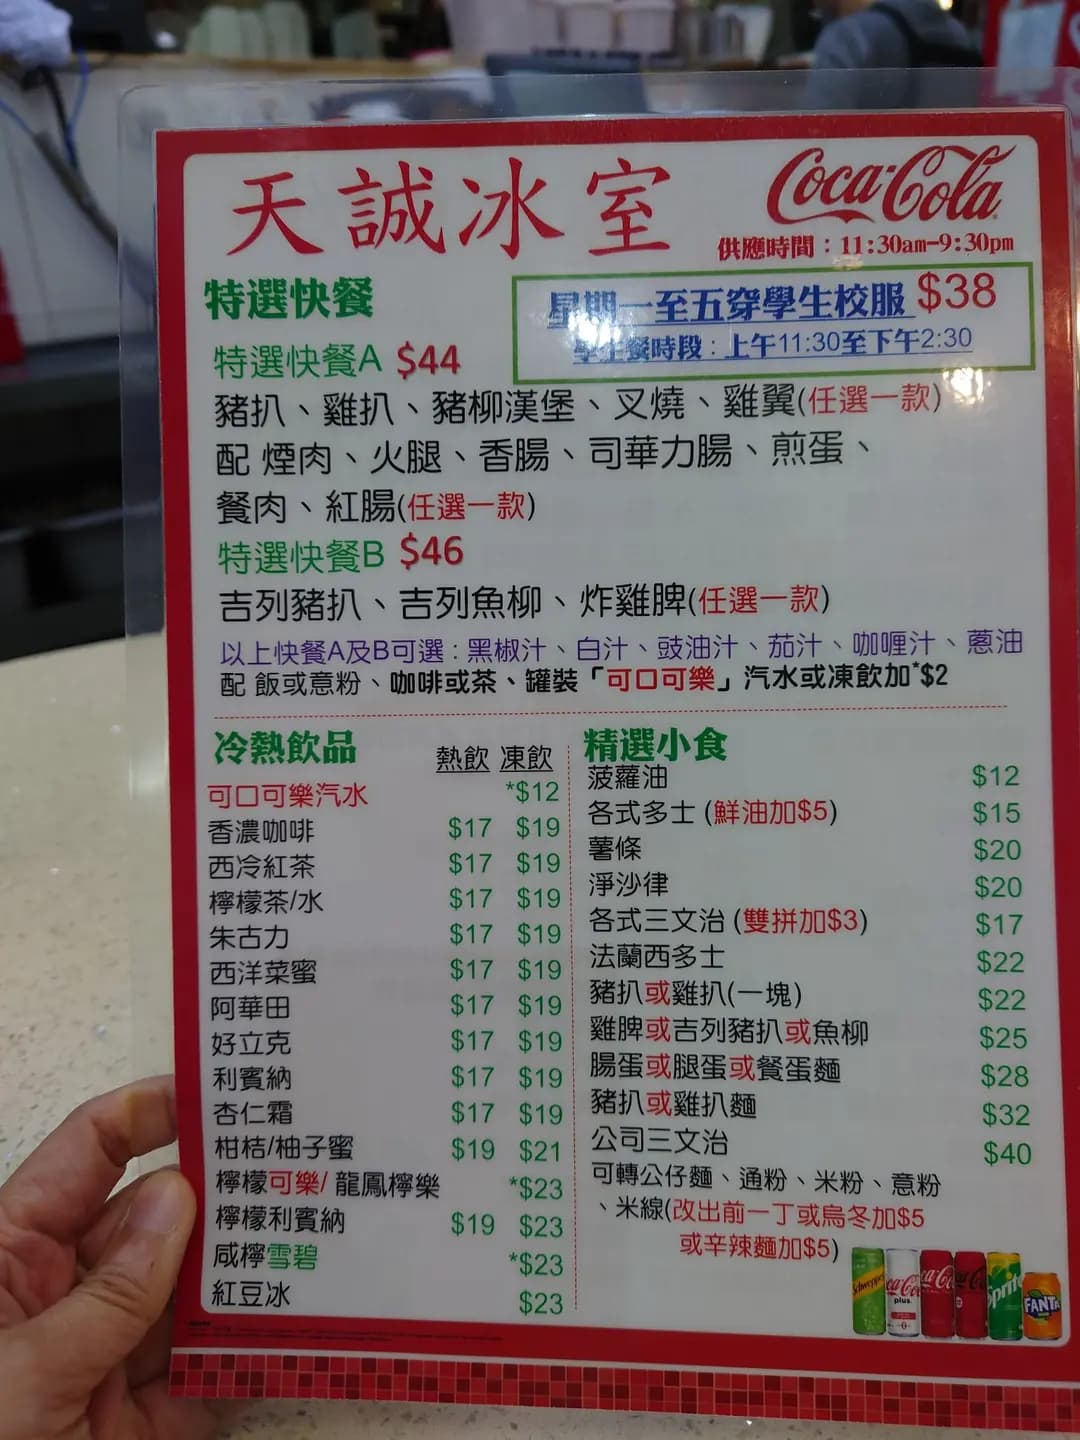 天誠冰室
Coca-Cola
供應時間：11:30am-9:30pm
特選快餐
星期一至五穿學生校服 $38
學生餐時段：上午11:30至下午2:30
特選快餐A $44
豬扒、雞扒、豬柳漢堡、叉燒、雞翼(任選一款)
配 煙肉、火腿、香腸、司華力腸、煎蛋、
餐肉、紅腸(任選一款)
特選快餐B $46
吉列豬扒、吉列魚柳、炸雞脾(任選一款)
以上快餐A及B可選：黑椒汁、白汁、豉油汁、茄汁、咖喱汁、蔥油
配 飯或意粉、咖啡或茶、罐裝「可口可樂」汽水或凍飲加*$2
冷熱飲品 熱飲 凍飲
可口可樂汽水 *$12
香濃咖啡 $17 $19
西冷紅茶 $17 $19
檸檬茶/水 $17 $19
朱古力 $17 $19
西洋菜蜜 $17 $19
阿華田 $17 $19
好立克 $17 $19
利賓納 $17 $19
杏仁霜 $17 $19
柑桔/柚子蜜 $19 $21
檸檬可樂/ 龍鳳檸樂 *$23
檸檬利賓納 $19 $23
咸檸雪碧 *$23
紅豆冰 $23
精選小食
菠蘿油 $12
各式多士 (鮮油加$5) $15
薯條 $20
淨沙律 $20
各式三文治 (雙拼加$3) $17
法蘭西多士 $22
豬扒或雞扒(一塊) $22
雞脾或吉列豬扒或魚柳 $25
腸蛋或腿蛋或餐蛋麵 $28
豬扒或雞扒麵 $32
公司三文治 $40
可轉公仔麵、通粉、米粉、意粉
、米線(改出前一丁或烏冬加$5
或辛辣麵加$5)
Schweppes
Coca-Cola
plus
Coca-Cola
Sprite
FANTA